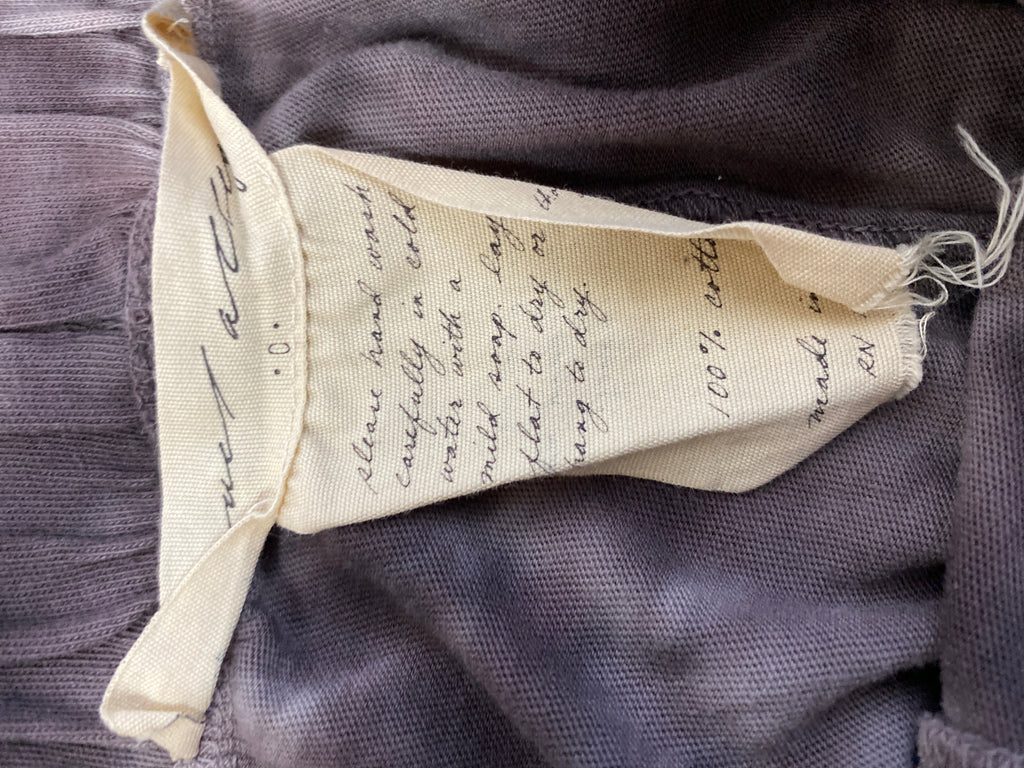 .0.
please hand wash
carefully in cold
water with a
mild soap. lay
flat to dry or
hang to dry.
100% cott
made in
RN